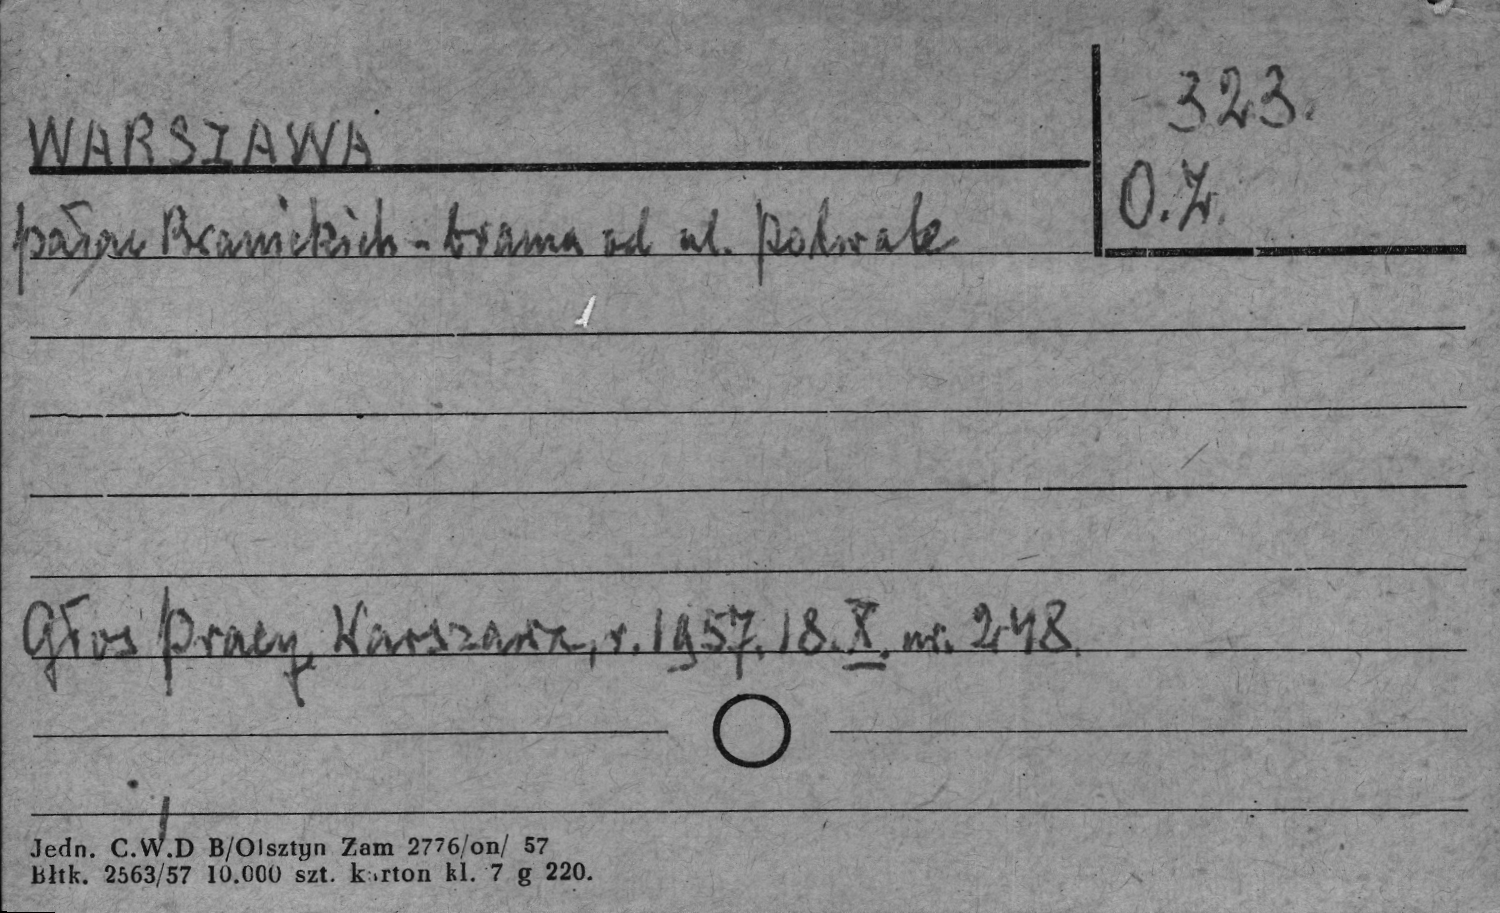 WARSZAWA
323.
O.Z.
pałac Branickich - brama od ul. Podwale
Głos Pracy, Warszawa, r. 1957. 18. X. nr. 248.
Jedn. C.W.D B/Olsztyn Zam 2776/on/ 57
Błtk. 2563/57 10.000 szt. karton kl. 7 g 220.